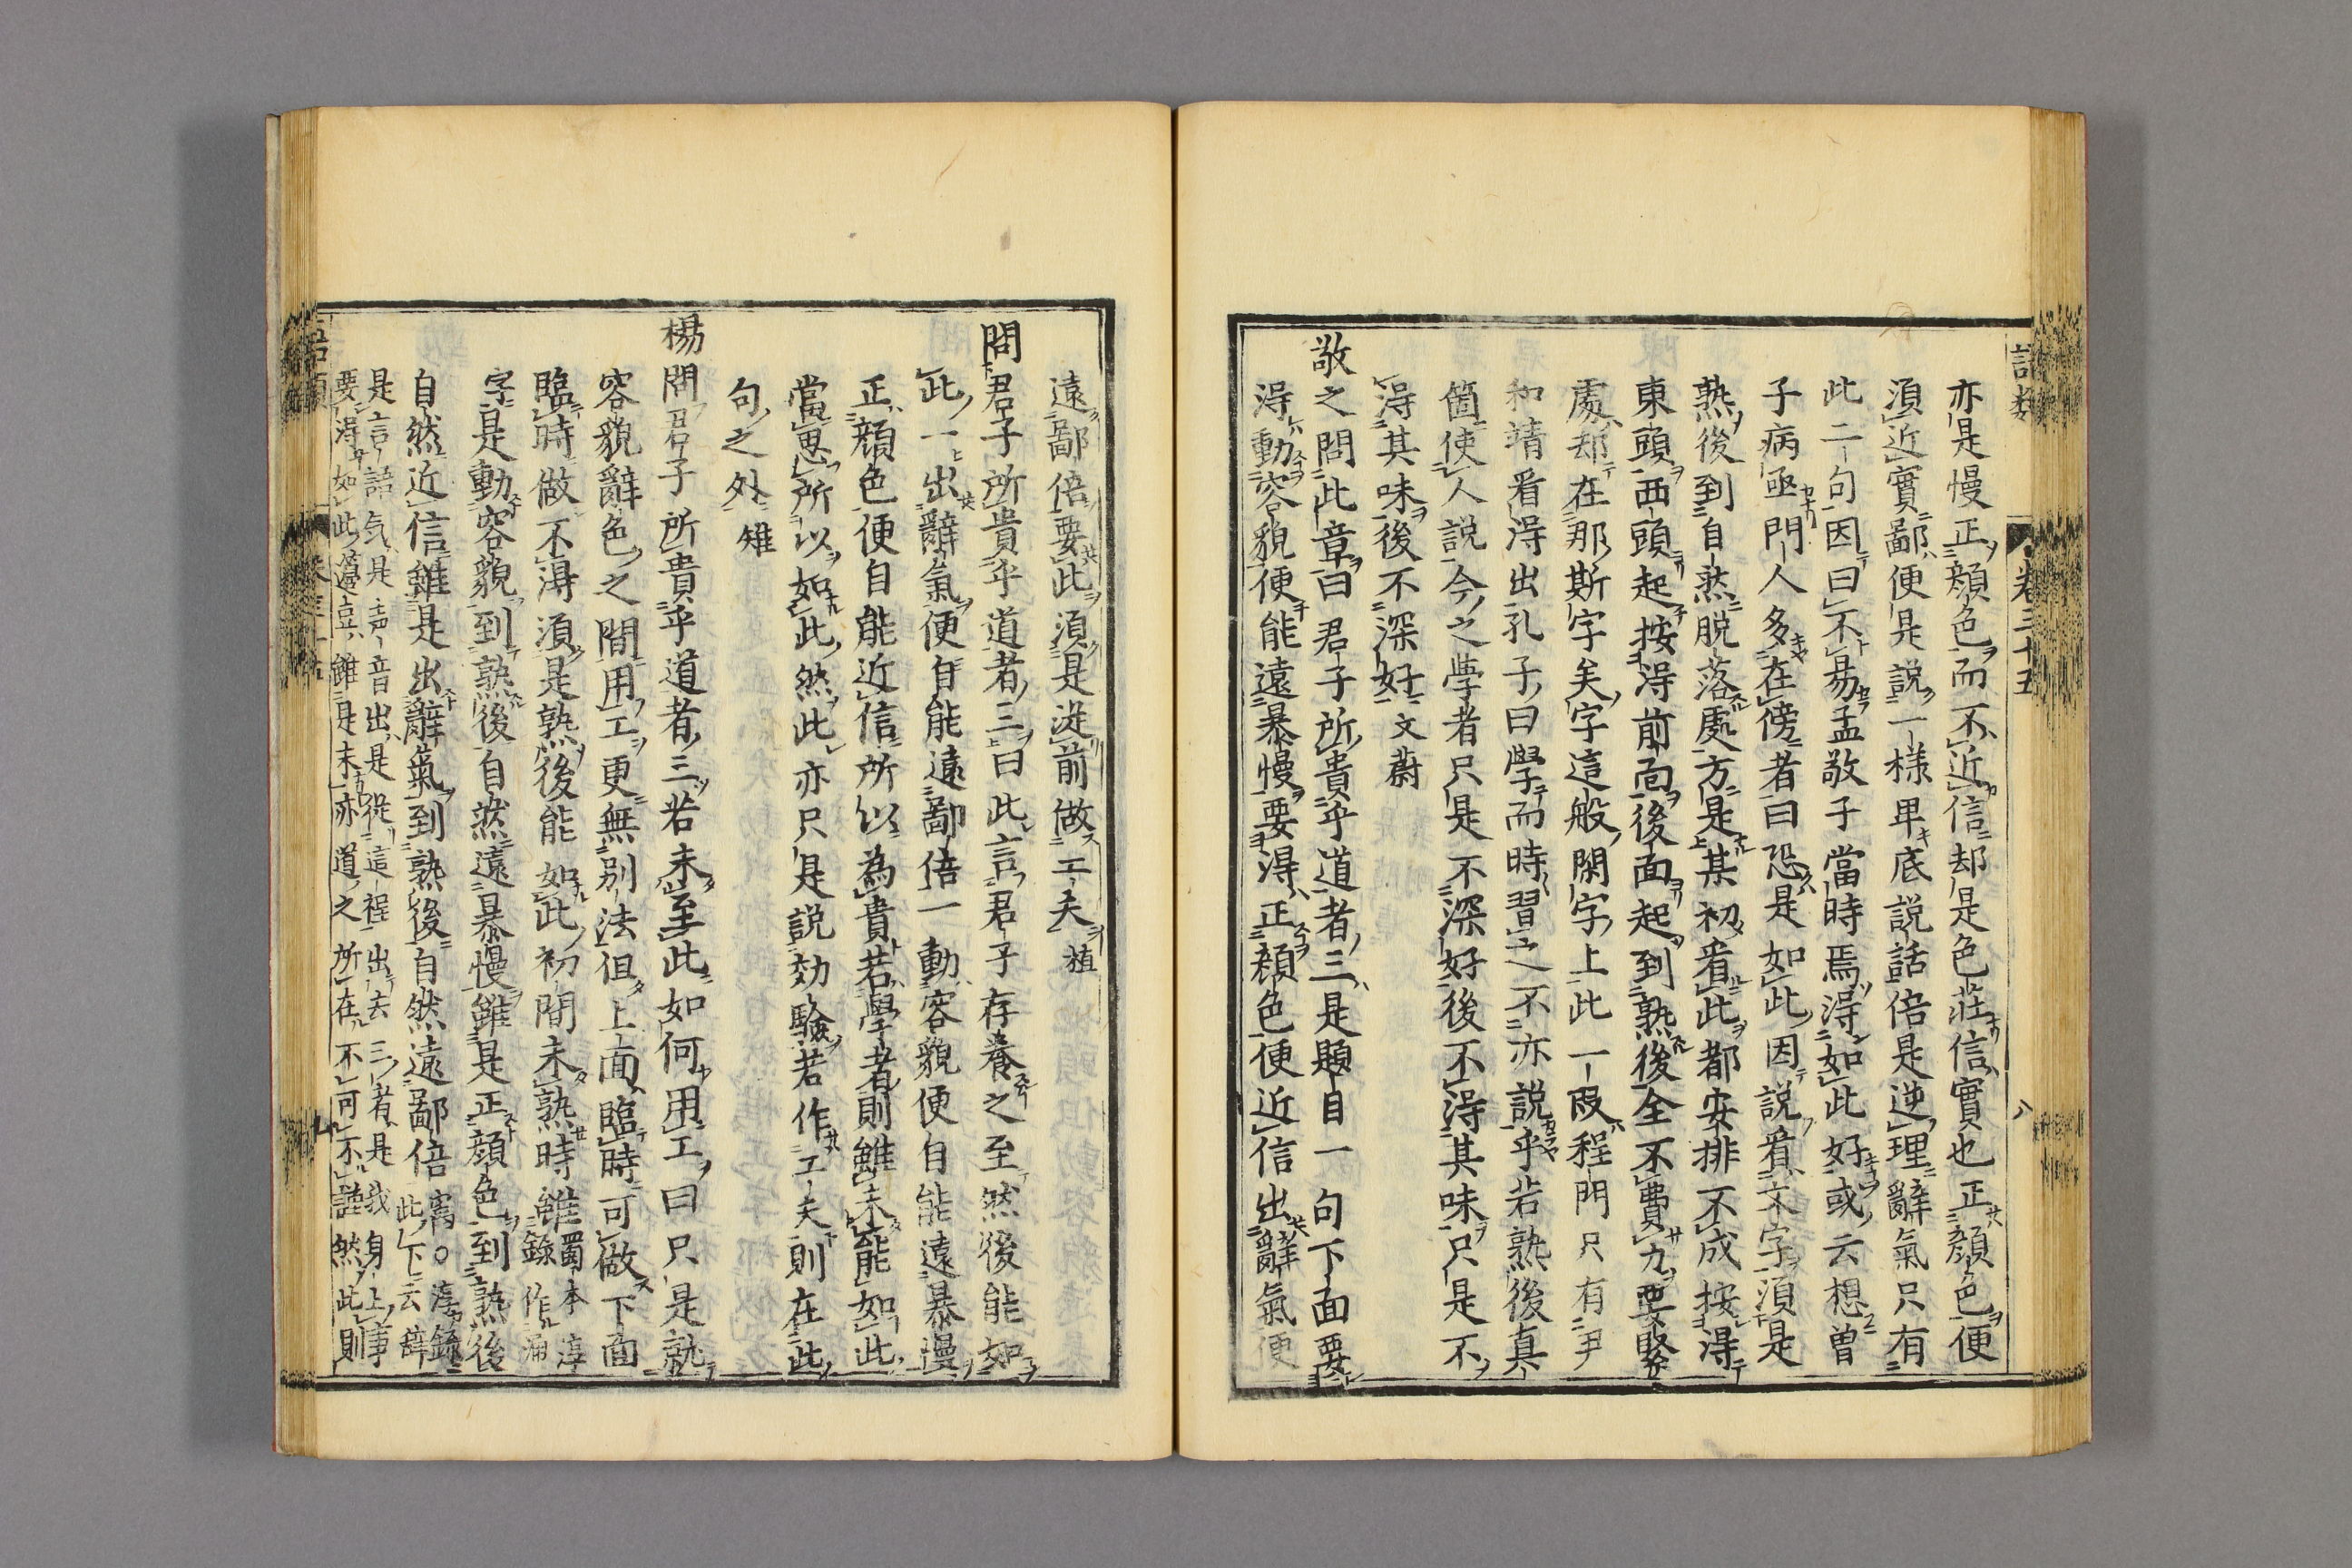 語類
卷三十五
八
亦是慢正顏色而不近信却是色莊信實也正顏色便
須近實鄙便是說一樣卑底說話倍是逆理辭氣只有
此二句因曰不易孟敬子當時焉得如此好或云想曾
子病亟門人多在傍者曰恐是如此因說看文字須是
熟後到自然脱落處方是某初看此都安排不成按得
東頭西頭起按得前面後面起到熟後全不費力要緊
處却在那斯字矣字這般閑字上此一段程門只有尹
和靖看得出孔子曰學而時習之不亦說乎若熟後真
箇使人說今之學者只是不深好後不得其味只是不
得其味後不深好文蔚
敬之問此章曰君子所貴乎道者三是題目一句下面要
得動容貌便能遠暴慢要得正顏色便近信出辭氣便
遠鄙倍要此須是從前做工夫植
問君子所貴乎道者三曰此言君子存養之至然後能如
此一出辭氣便自能遠鄙倍一動容貌便自能遠暴慢
正顏色便自能近信所以為貴若學者則雖未能如此
當思所以如此然此亦只是說効驗若作工夫則在此
句之外雉
楊問君子所貴乎道者三若未至此如何用工曰只是就
容貌辭色之間用工更無别法但上面臨時可做下面
臨時做不得須是熟後能如此初間未熟時雖蜀本淳錄作須
字是動容貌到熟後自然遠暴慢雖是正顏色到熟後
自然近信雖是出辭氣到熟後自然遠鄙倍㝢○淳錄此下云辭
是言語气是声音出是從這裡出去三者是我身上事
要得如此籩豆雖是末亦道之所在不可不謹然此則